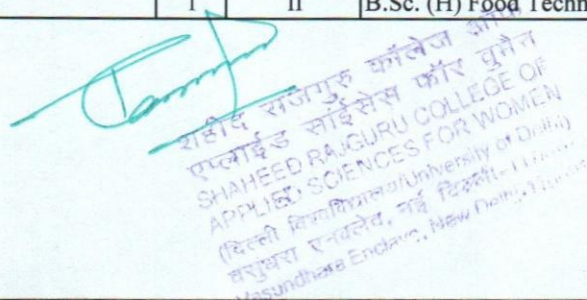 I II B.Sc. (H) Food Techn
शहीद राजगुरु कॉलेज ऑफ
एप्लाईड साईंसेस फॉर वुमैन
SHAHEED RAJGURU COLLEGE OF
APPLIED SCIENCES FOR WOMEN
(दिल्ली विश्वविद्यालय/University of Delhi)
वसुंधरा एनक्लेव, नई दिल्ली
Vasundhara Enclave, New Delhi